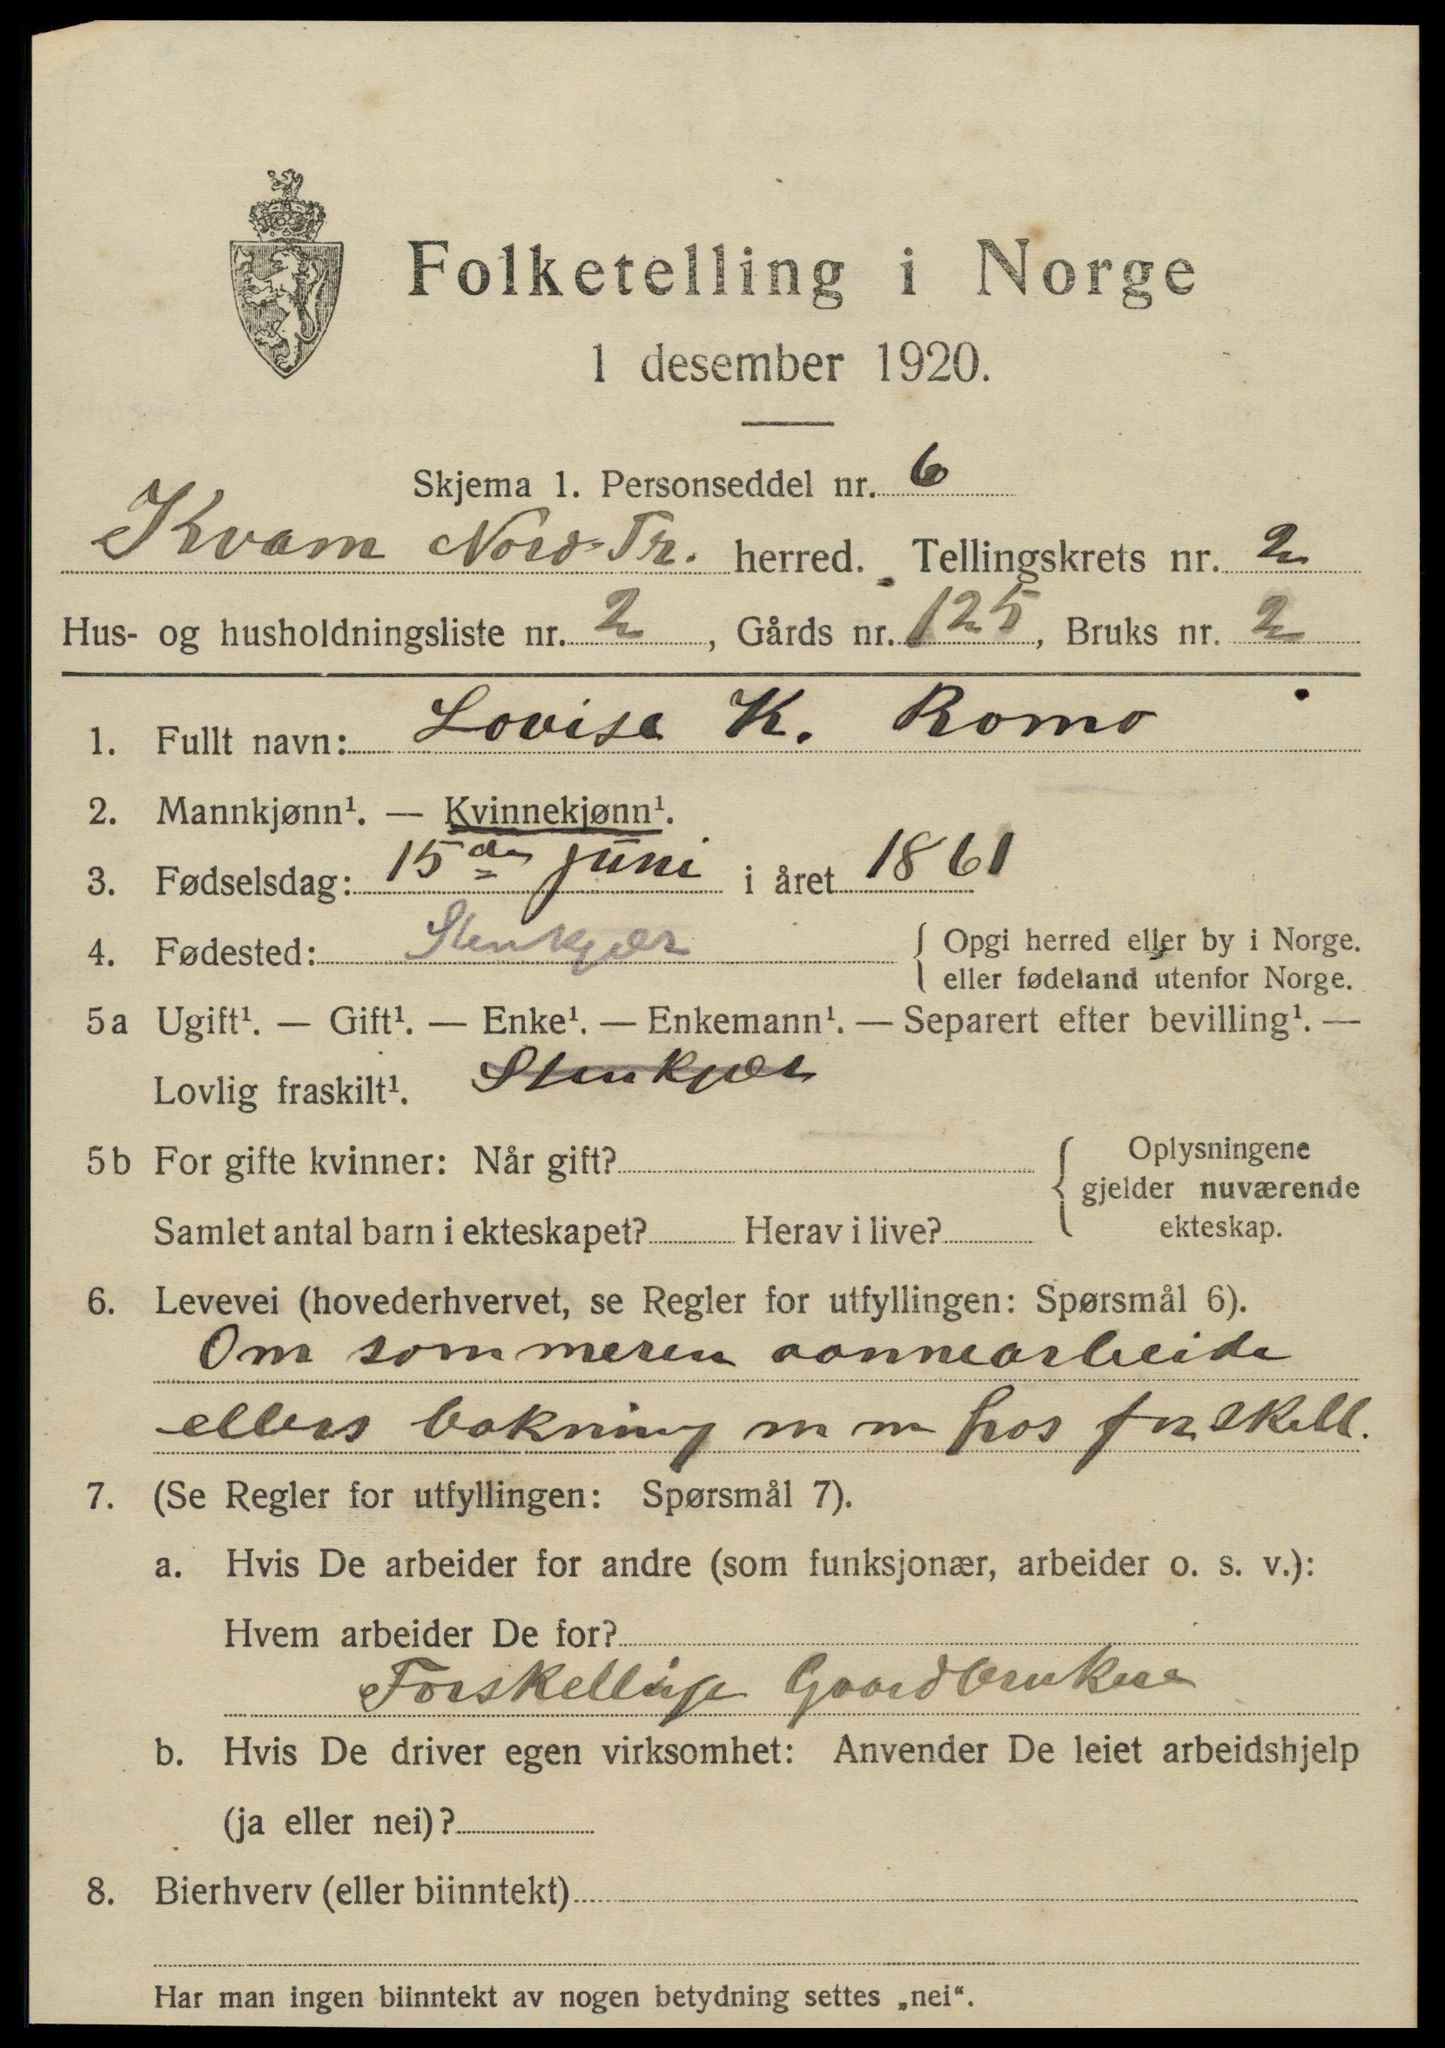 Folketelling i Norge
1 desember 1920.
Skjema 1. Personseddel nr. 6
Kvam Nord-Tr. herred. Tellingskrets nr. 2
Hus- og husholdningsliste nr. 2, Gårds nr. 125, Bruks nr. 2
1. Fullt navn: Lovise K. Romo
2. Mannkjønn¹. — Kvinnekjønn¹.
3. Fødselsdag: 15de juni i året 1861
4. Fødested: Stenkjær { Opgi herred eller by i Norge.
eller fødeland utenfor Norge.
5a Ugift¹. — Gift¹. — Enke¹. — Enkemann¹. — Separert efter bevilling¹. —
Lovlig fraskilt¹. Stenkjær
5b For gifte kvinner: Når gift? { Oplysningene
gjelder nuværende
Samlet antal barn i ekteskapet? Herav i live? ekteskap.
6. Levevei (hovederhvervet, se Regler for utfyllingen: Spørsmål 6).
Om sommeren aannearbeide
ellers bakning m m hos forskell.
7. (Se Regler for utfyllingen: Spørsmål 7).
a. Hvis De arbeider for andre (som funksjonær, arbeider o. s. v.):
Hvem arbeider De for?
Forskellige Gaardbrukere
b. Hvis De driver egen virksomhet: Anvender De leiet arbeidshjelp
(ja eller nei)?
8. Bierhverv (eller biinntekt)
Har man ingen biinntekt av nogen betydning settes „nei“.